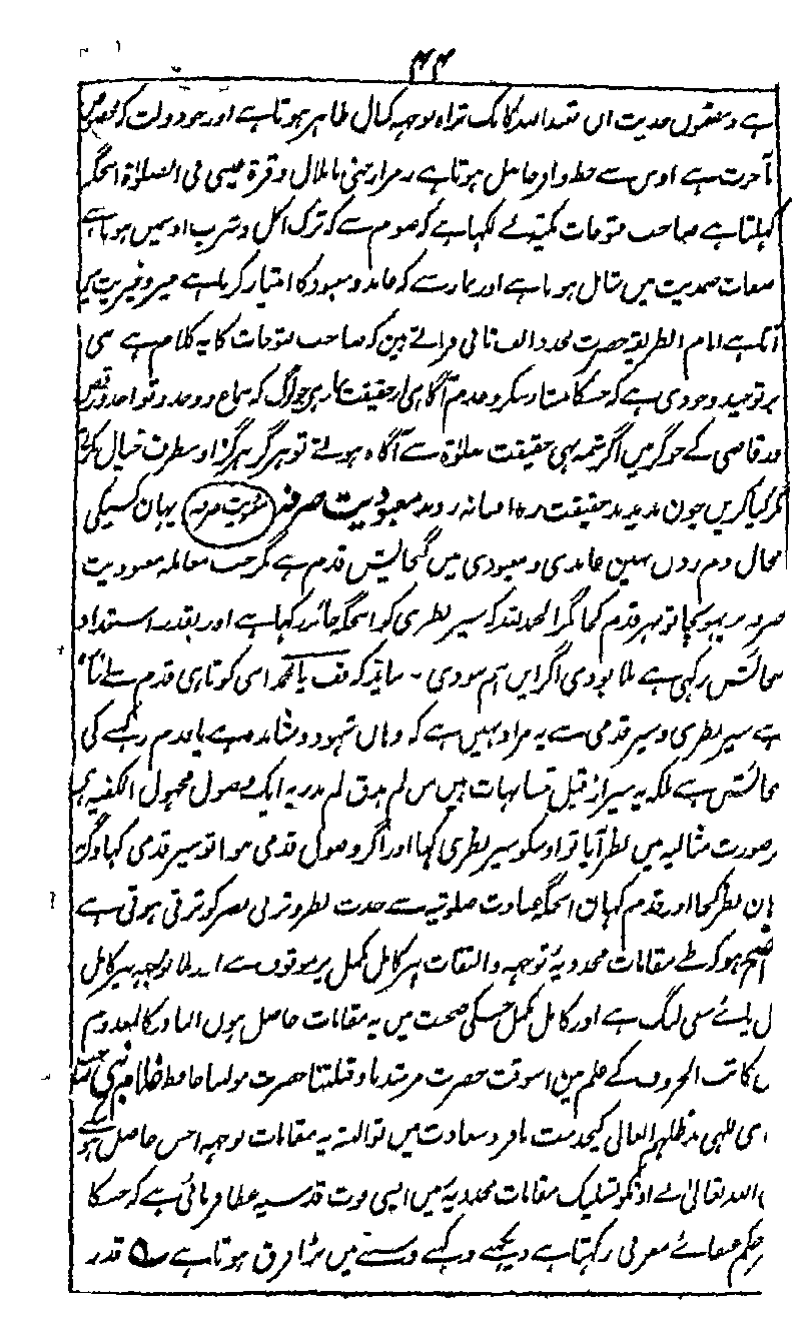 ۴۴
ہے و مضمون حدیث ان تعبد اللہ کانک تراہ بوجہ کمال ظاہر ہوتا ہے اور جو دولت کہ مخصوص
بآخرت ہے اوس سے حظ وافر حاصل ہوتا ہے رمز ارحنی یا بلال و قرة عینی فی الصلوٰة اسجگہ
کہلتا ہے صاحب فتوحات مکیہ نے لکہا ہے کہ صوم سے کہ ترک اکل و شرب اوسمیں ہوتا ہے
صفات صمدیت میں شامل ہوتا ہے اور نماز سے کہ عابد و معبود کا امتیاز کرنا ہے غیر و غیریت میں
آتا ہے امام الطریقہ حضرت مجدد الف ثانی فرماتے ہین کہ صاحب فتوحات کا یہ کلام ہے مبنی
بر توحید وجودی ہے کہ جسکا منشا سکر و عدم آگاہی از حقیقت نماز ہی جو لوگ کہ سماع و وجد و تواجد و رقص
و رقاصی کے خوگر ہیں اگر شمہ بہی حقیقت صلوٰة سے آگاہ ہوتے تو ہرگز ہرگز اوسطرف خیال نکرتے
مگر کیا کریں چون ندیدند حقیقت رہ افسانہ زدند معبودیت صرفہ (معبودیت صرفہ) یہان کسیکی
مجال دم زدن نہین عابدی و معبودی میں گنجایش قدم ہے مگر جب معاملہ معبودیت
صرفہ پر پہونچا تو سیر قدم کہا مگر الحمد للہ کہ سیر نظری کو اسجگہ جائز رکہا ہے اور بقدر استعداد
گنجائش رکہی ہے بلا بودی اگر این ہم نبودی ۔ شاید کہ قف یا محمد اسی کوتاہی قدم سے
ہے سیر نظری و سیر قدمی سے یہ مراد نہیں ہے کہ وہاں شہود و مشاہدہ ہے یا قدم رکہنے کی
گنجائش ہے بلکہ یہ سیر از قبیل تشابہات ہیں من لم یذق لم یدر یہ ایک وصول مجہول الکیفیہ ہی
صورت مثالیہ میں نظر آیا تو اوسکو سیر نظری کہا اور اگر وصول قدمی ہوا تو سیر قدمی کہا وگرنہ
وہان نظر کجا اور قدم کہان اسجگہ عبادت صلوتیہ سے حدت نظر و تیزی بصر کو ترقی ہوتی ہے
واضح ہو کہ طے مقامات مجددیہ توجہ و التفات پیر کامل مکمل پر موقوف ہے اور بلا توجہ پیر کامل
پائے سعی لنگ ہے اور کامل مکمل جسکی صحبت میں یہ مقامات حاصل ہوں النادر کالمعدوم
کاتب الحروف کے علم مین اسوقت حضرت مرشدنا و قبلتنا حضرت مولانا حافظ غلام نبی صاحب
للہی مد ظلہم العالی کیخدمت سعادت میں تو البتہ یہ مقامات بوجہ احسن حاصل ہوتے
اللہ تعالیٰ نے اونکو تسلیک مقامات مجددیہ میں ایسی قوت قدسیہ عطا فرمائی ہے کہ جسکا
حکم عنقائے مغربی رکہتا ہے دیکہنے و کہنے و سننے میں بڑا فرق ہوتا ہے ؎ قدر